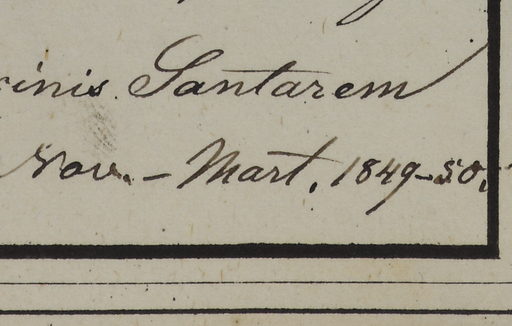 cinis Santarem
Nov. – Mart. 1849–50.